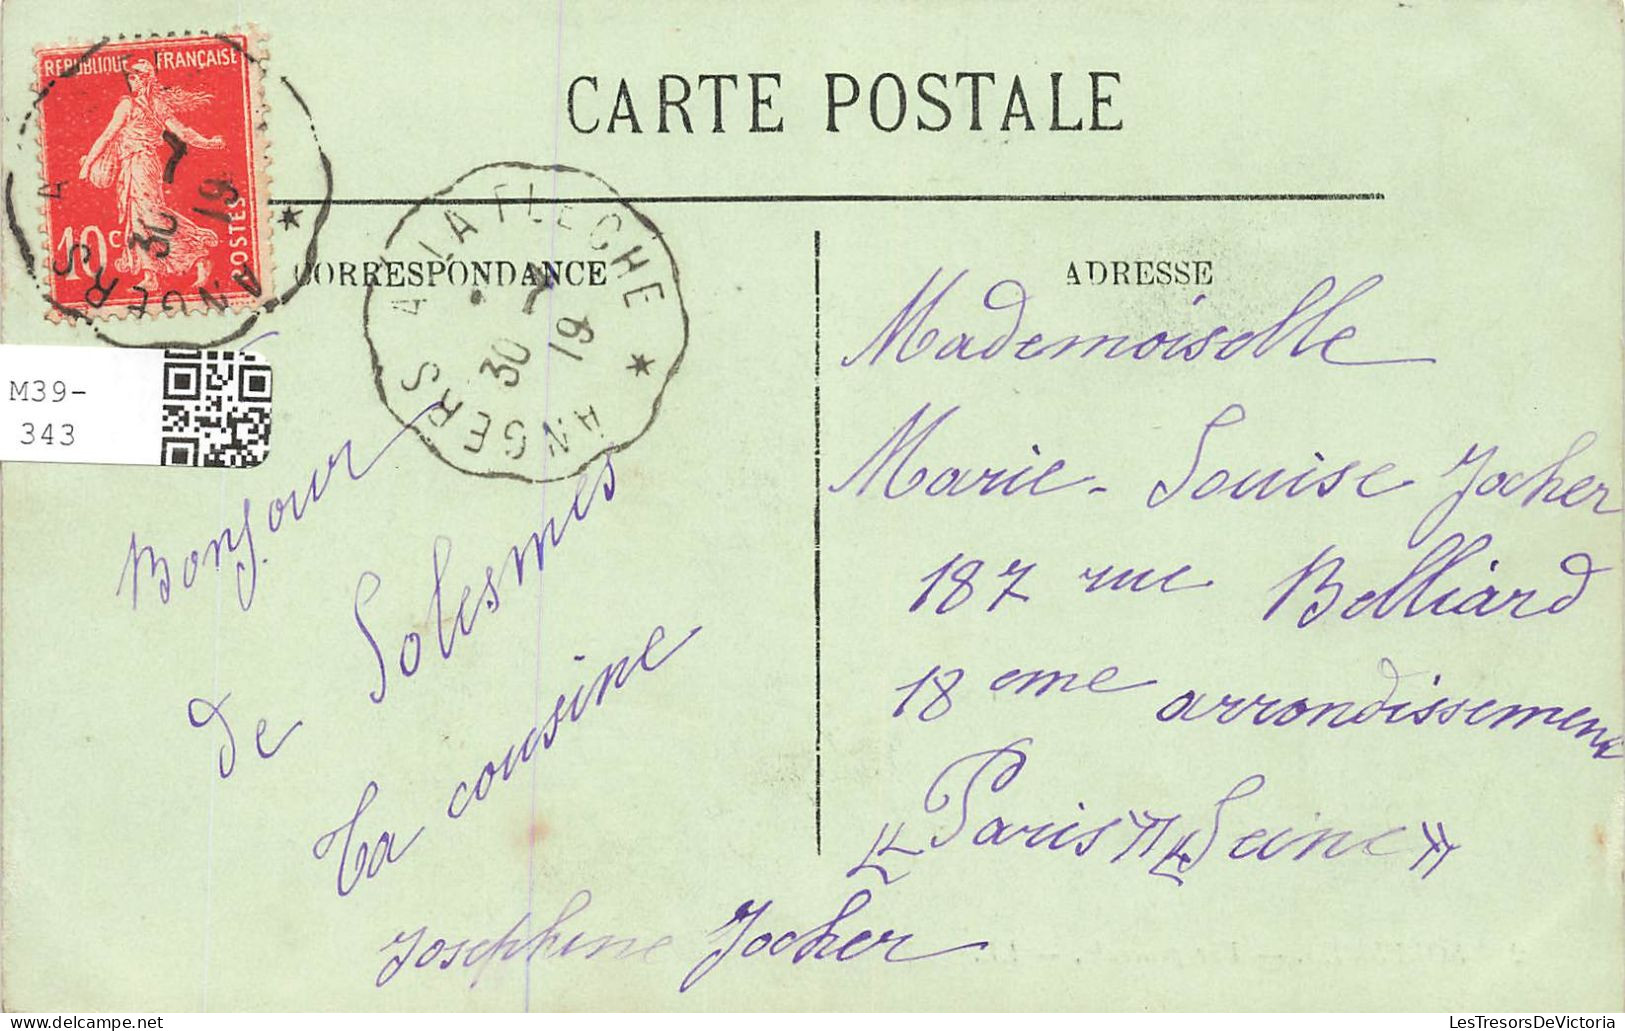 REPUBLIQUE FRANÇAISE
10c
POSTES
ANGERS A
30 7
19
CARTE POSTALE
ANGERS A LA FLECHE ANGERS
30 7
19
CORRESPONDANCE
ADRESSE
M39-
343
Bonjour
de Solesmes
Ta cousine
Josephine Jocher
Mademoiselle
Marie-Louise Jocher
187 rue Belliard
18 eme arrondissement
"Paris" "Seine"
LesTresorsDeVictoria